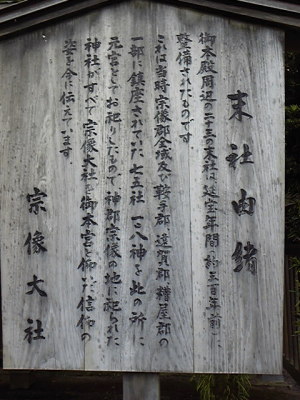 末社由緒
御本殿周辺の二十三の末社は延宝年間(約三百年前)に
整備されたものです。
これは当時宗像郡全域及び鞍手郡、遠賀郡、糟屋郡の
一部に鎮座されていた七五社一〇八神を此の所に
元宮としてお祀りしたもので、神郡宗像の地に祀られた
神社がすべて宗像大社を御本宮と仰いだ信仰の
姿を今に伝えています。
宗像大社